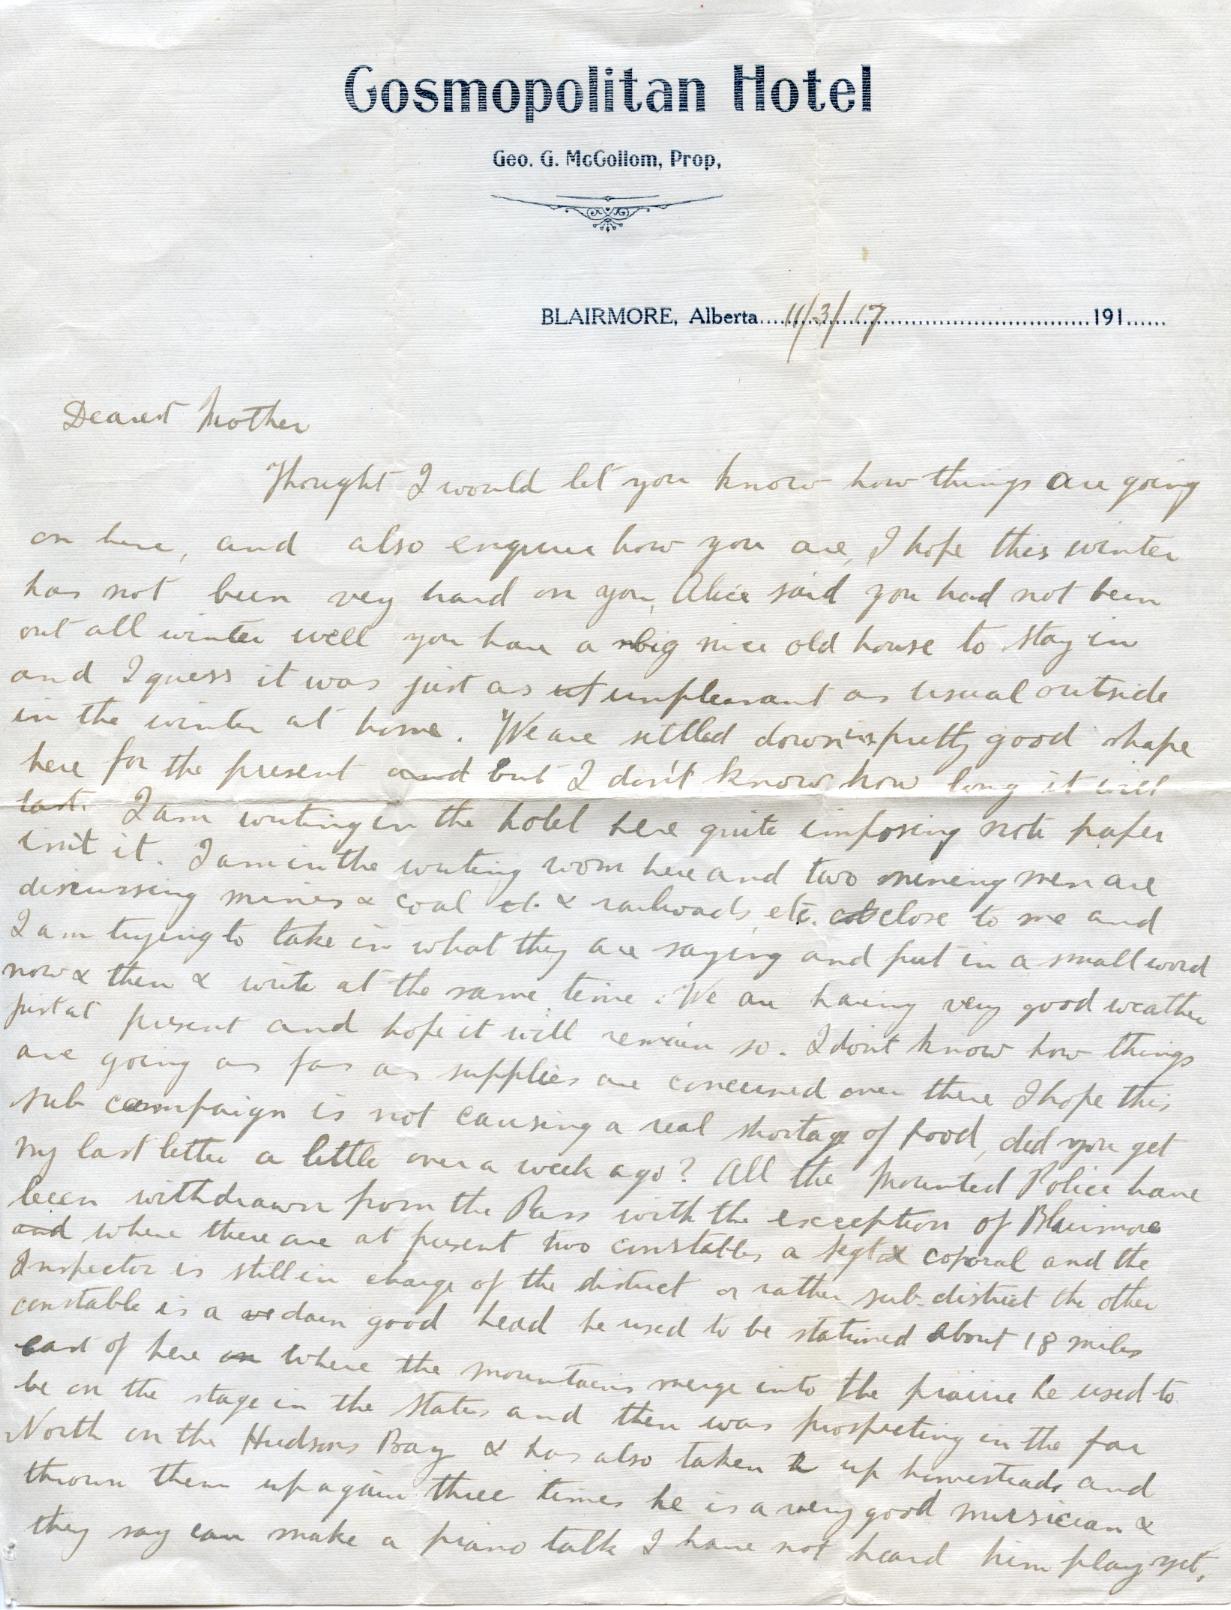 Cosmopolitan Hotel
Geo. G. McCollom, Prop,
BLAIRMORE, Alberta....11/3/17....191......
Dearest Mother
Thought I would let you know how things are going
on here, and also enquire how you are, I hope this winter
has not been very hard on you, Alice said you had not been
out all winter well you have a big nice old house to stay in
and I guess it was just as unpleasant as usual outside
in the winter at home. We are settled down in pretty good shape
here for the present and but I don't know how long it will
last. I am writing in the hotel here quite imposing note paper
isn't it. I am in the writing room here and two mining men are
discussing mines & coal & railroads, etc. close to me and
I am trying to take in what they are saying and put in a small word
now & then & write at the same time. We are having very good weather
just at present and hope it will remain so. I dont know how things
are going as far as supplies are concerned over there I hope this
sub campaign is not causing a real shortage of food, did you get
my last letter a little over a week ago? All the Mounted Police have
been withdrawn from the Pass with the exception of Blairmore
and where there are at present two constables a sgt & coporal and the
Inspector is still in charge of the district or rather sub-district the other
constable is a darn good head he used to be stationed about 18 miles
east of here where the mountains merge into the prairie he used to
be on the stage in the states and then was prospecting in the far
North on the Hudsons Bay & has also taken up homesteads and
thrown them up again three times he is a very good mursician &
they say can make a piano talk I have not heard him play yet,